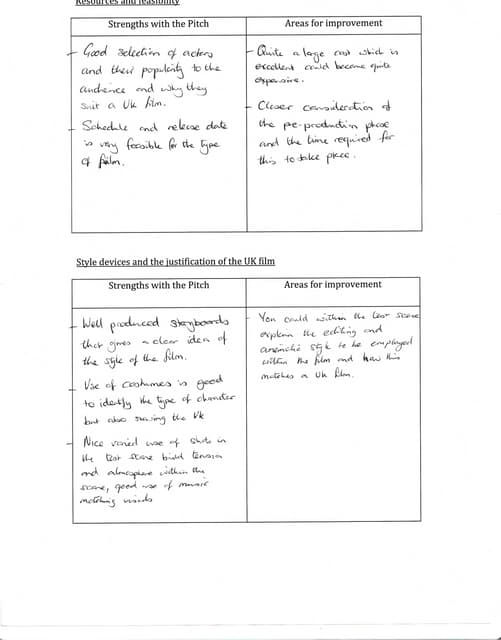 Resources and feasibility
Strengths with the Pitch
- Good selection of actors
and their popularity to the
audience and why they
suit a UK film.
- Schedule and release date
is very feasible for the type
of film.
Areas for improvement
- Quite a large cast which is
excellent could become quite
expensive.
- Closer consideration of
the pre-production phase
and the time required for
this to take place.
Style devices and the justification of the UK film
Strengths with the Pitch
- Well produced storyboards
that gives a clear idea of
the style of the film.
- Use of costumes is good
to identify the type of character
but also the UK
- Nice varied use of shots in
the test scene build tension
and atmosphere within the
scene, good use of music
matching
Areas for improvement
You could within the test scene
explain the editing and
style to be employed
within the film and how this
matches a UK film.